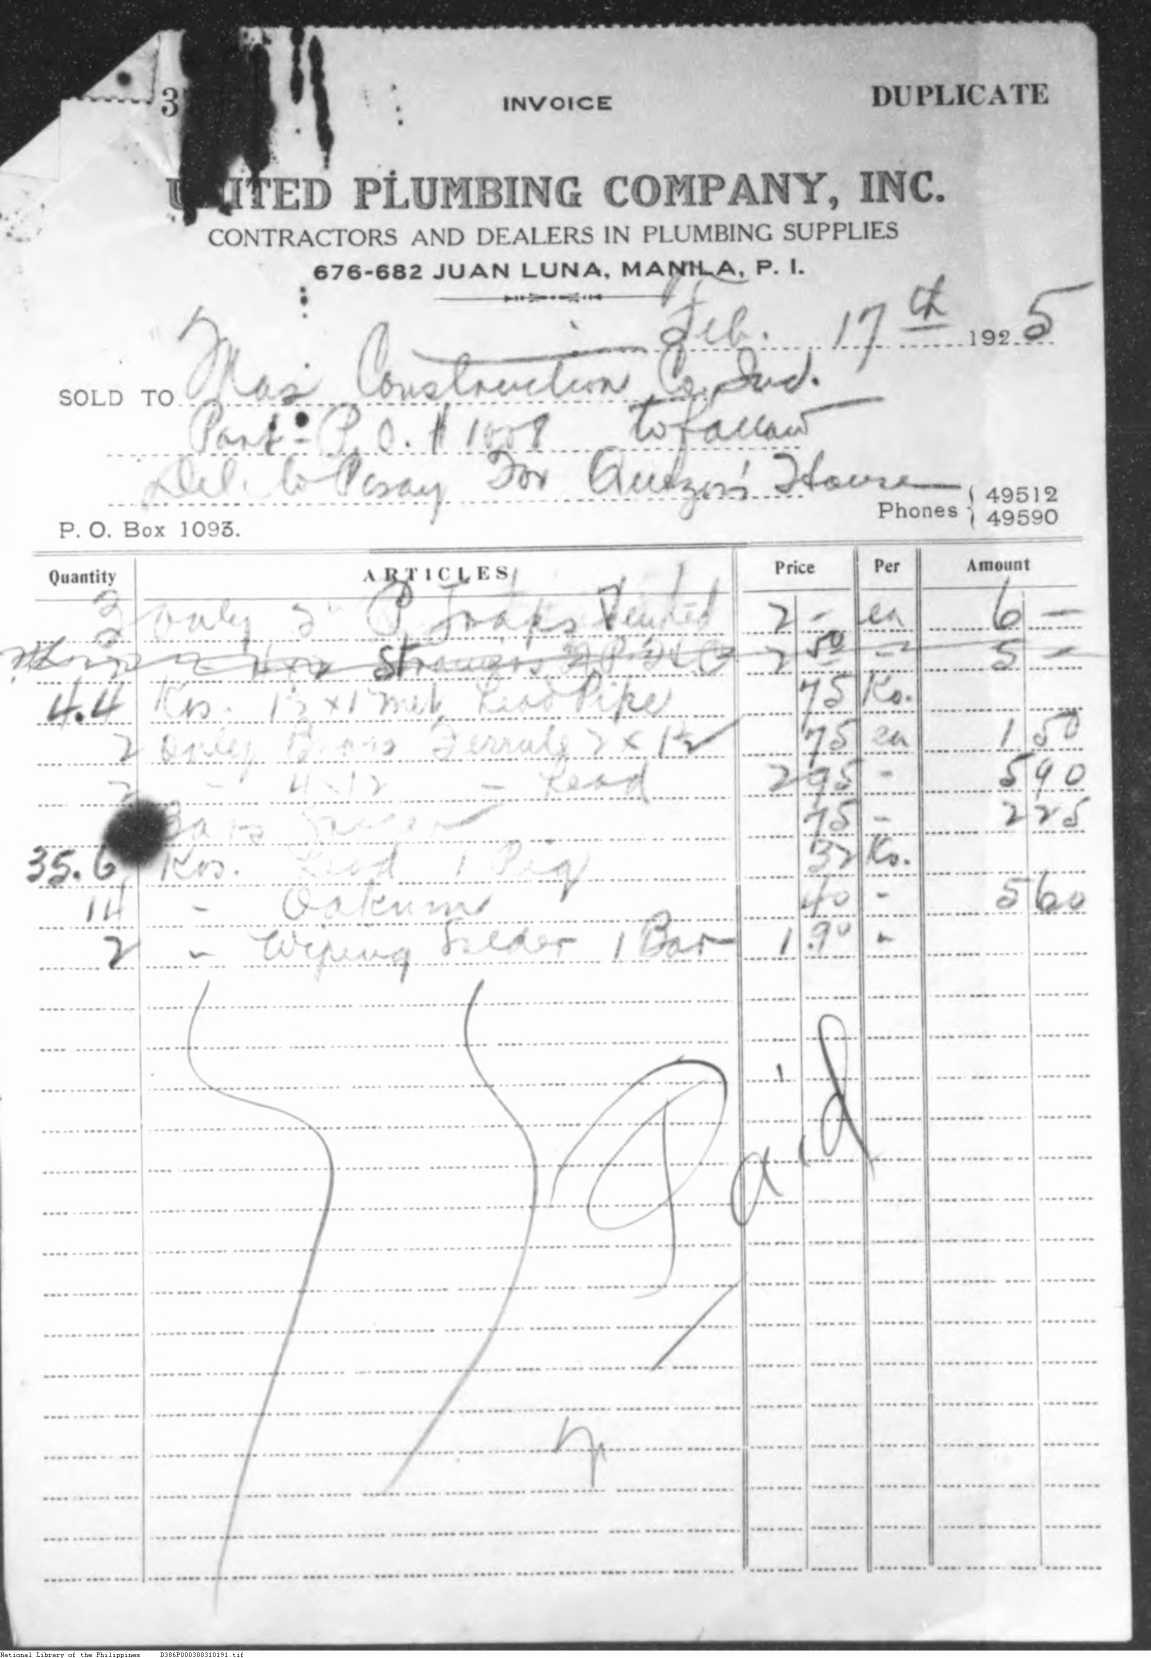 3
INVOICE
DUPLICATE
UNITED PLUMBING COMPANY, INC.
CONTRACTORS AND DEALERS IN PLUMBING SUPPLIES
676-682 JUAN LUNA, MANILA, P. I.
Feb. 17th 1925
SOLD TO Mas Construction Co.
Part - P.O. # 1008 to follow
Del. to Pasay For Quezon's House
Phones 49512
49590
P. O. Box 1093.
Quantity ARTICLES Price Per Amount
3 only 2" P. Traps Vented 2 - ea 6 -
2 50 - 5 -
4.4 Kos. Lead Pipe 75 Ko.
2 only Brass Ferrule 2 x 1½ 75 ea 1 50
2 - 4 x 12 - Lead 2 95 - 5 90
75 - 2 25
35.6 Kos. Lead 1 Pig 32 Ko.
14 - Oakum 40 - 5 60
2 - Wiping Solder 1 Bar 1.90 -
Paid
National Library of the Philippines D386P000380310191.tif